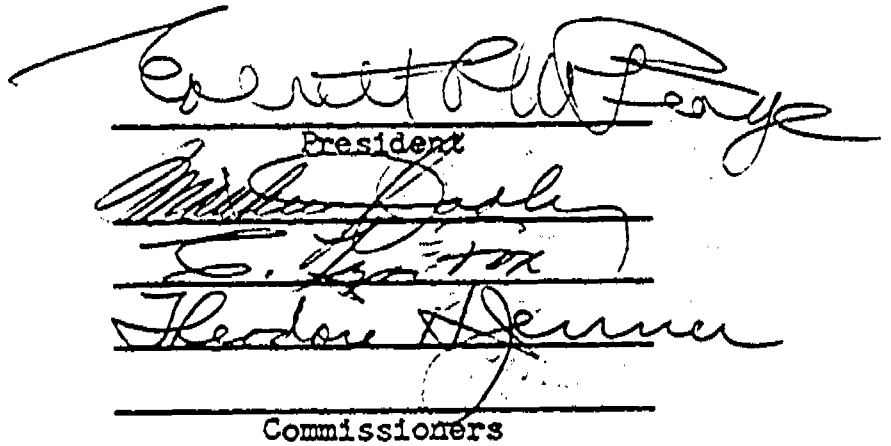 Everett C. McKeage
President
C. Lyn Fox
Theodore H. Jenner
Commissioners